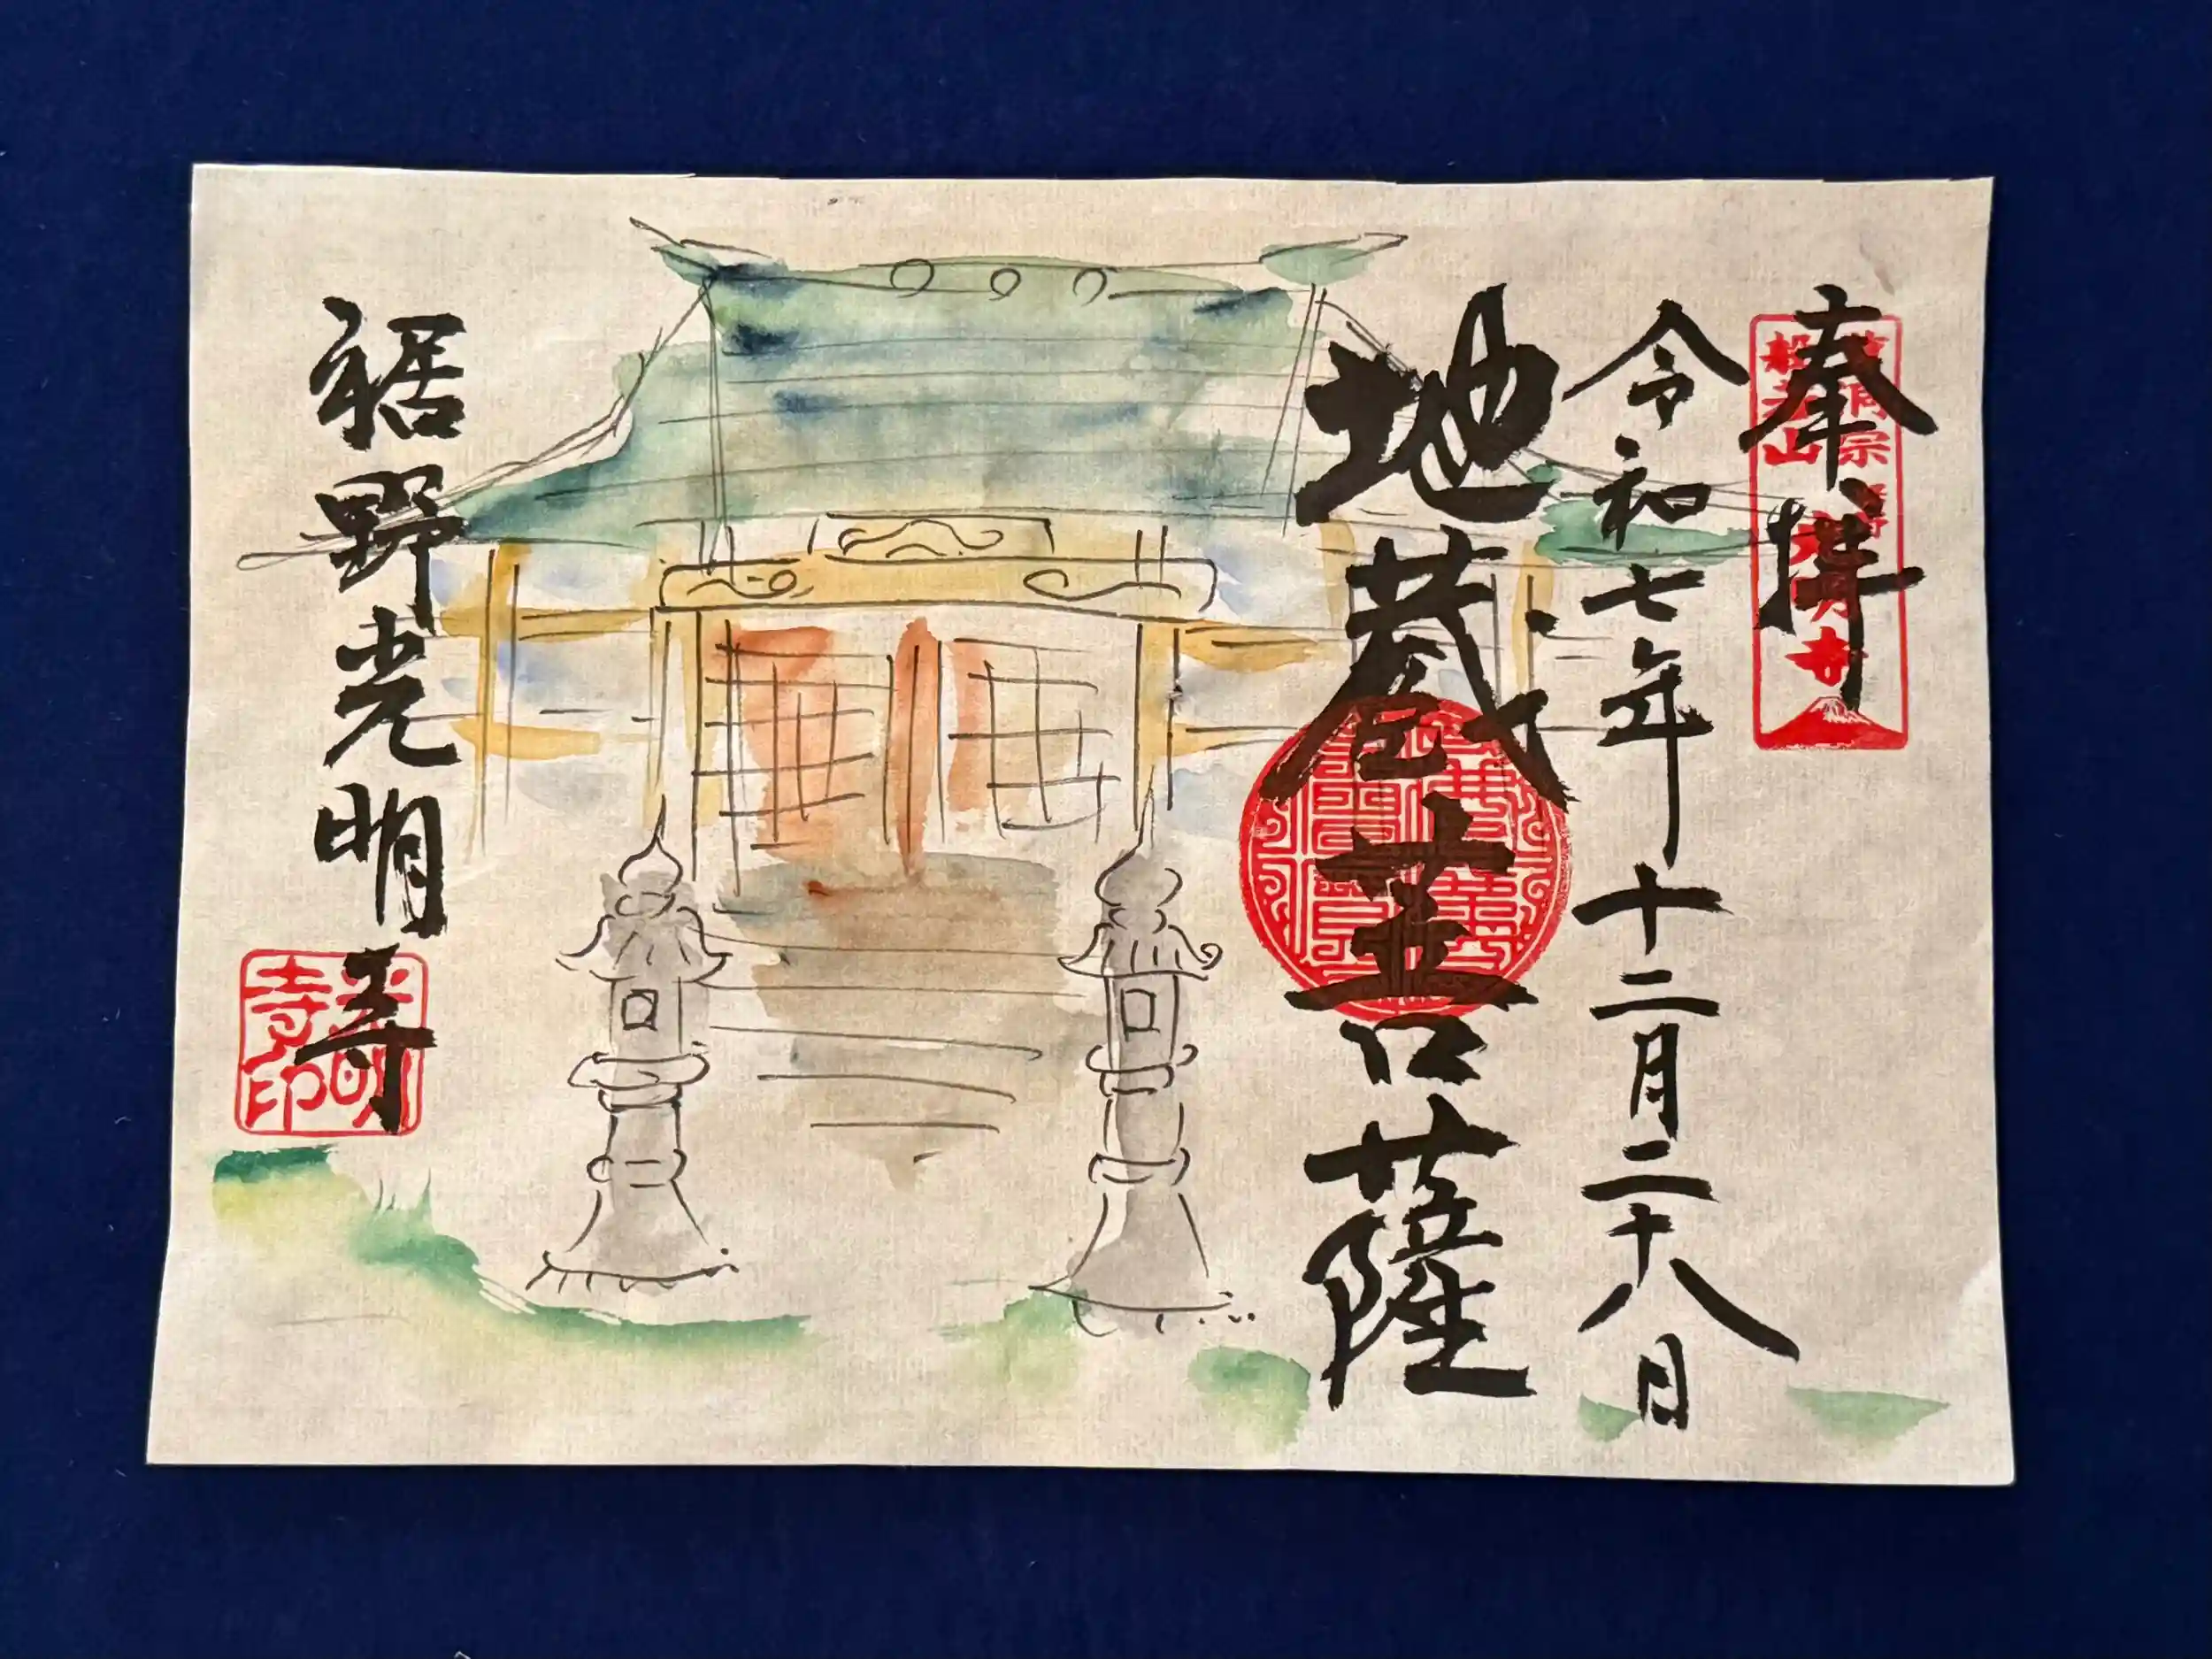 奉拝
令和七年十二月二十八日
地蔵菩薩
裾野光明寺
光明
寺印